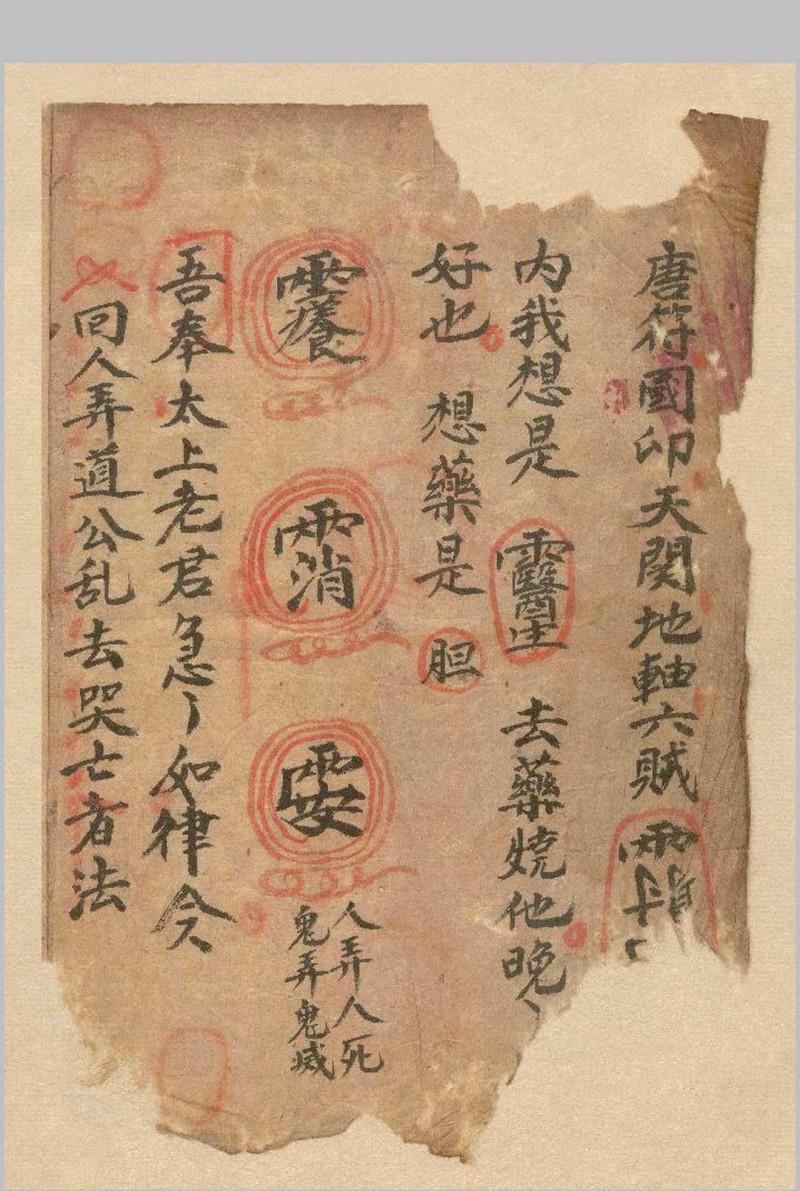 唐符國印天關地軸六賊
内我想是 去藥燒他晚〻
好也 想藥是 胆
人弄人死
鬼弄鬼滅
吾奉太上老君急〻如律令
回人弄道公乱去哭亡者法